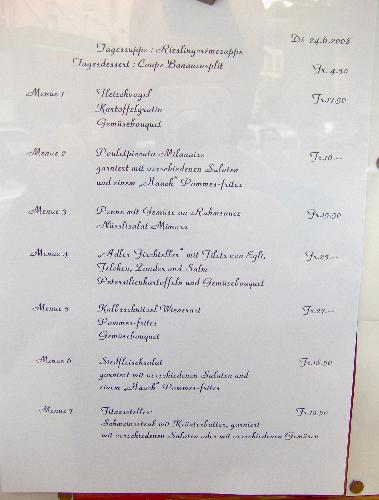 Di. 24.6.2008
Tagessuppe : Rieslingcrèmesuppe
Tagesdessert : Coupe Bananensplit Fr. 4.50
Menue 1 Fleischvogel Fr.17.50
Kartoffelgratin
Gemüsebouquet
Menue 2 Pouletpiccata Milanaise Fr.16.--
garniert mit verschiedenen Salaten
und einem „Hauch“ Pommes-frites
Menue 3 Penne mit Gemüse an Rahmsauce Fr.15.50
Nüsslisalat Mimosa
Menue 4 „Adler Fischteller“ mit Filets von Egli, Fr.25.--
Felchen, Zander und Salm
Petersilienkartoffeln und Gemüsebouquet
Menue 5 Kalbsschnitzel Wienerart Fr.27.--
Pommes-frites
Gemüsebouquet
Menue 6 Siedfleischsalat Fr.16.50
garniert mit verschiedenen Salaten und
einem „Hauch“ Pommes-frites
Menue 7 Fitnessteller: Fr.19.50
Schweinssteak mit Kräuterbutter, garniert
mit verschiedenen Salaten oder mit verschiedenen Gemüsen